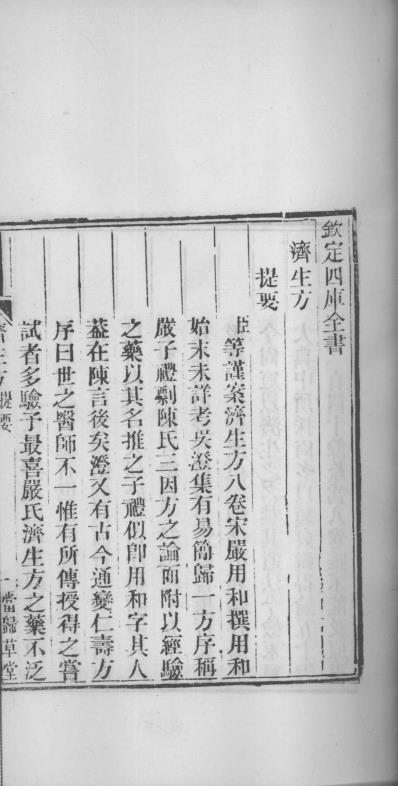 欽定四庫全書
濟生方
提要
臣等謹案濟生方八卷宋嚴用和撰用和
始末未詳考吳澄集有易簡歸一方序稱
嚴子禮剽陳氏三因方之論而附以經驗
之藥以其名推之子禮似卽用和字其人
葢在陳言後矣澄又有古今通變仁壽方
序曰世之醫師不一惟有所傳授得之嘗
試者多驗予最喜嚴氏濟生方之藥不泛
濟生方 提要 一 當歸草堂